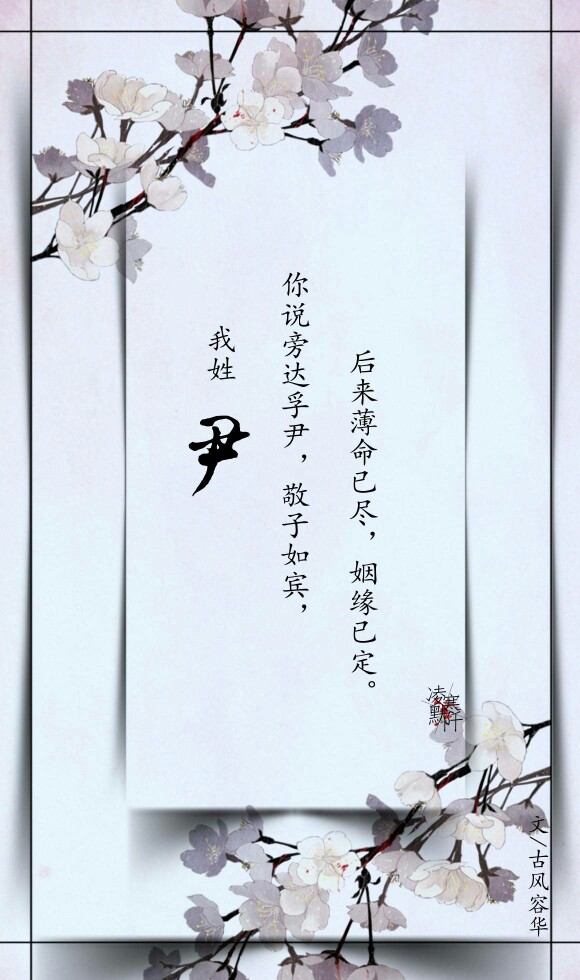 我姓
尹
你说旁达孚尹，敬子如宾，
后来薄命已尽，姻缘已定。
凌寒
文/古风容华